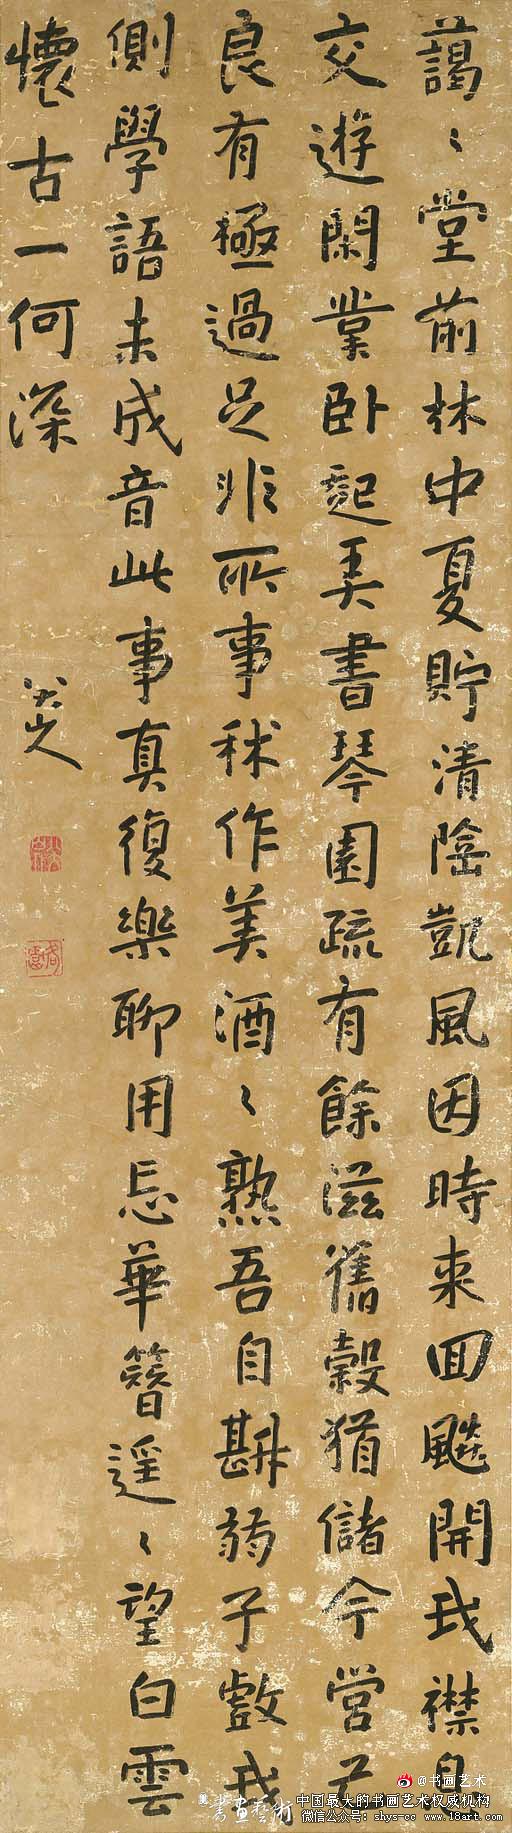 藹〻堂前林中夏貯清陰凱風因時来回飈開我襟息
交遊閑業卧起弄書琴園疏有餘滋舊穀猶儲今營己
良有極過足非所事秫作美酒〻熟吾自斟弱子戲我
側學語未成音此事真復樂聊用忘華簪遥〻望白雲
懷古一何深
八大山人
@书画艺术
書畫藝術
中国最大的书画艺术权威机构
微信公众号: shys-cc www.18art.com